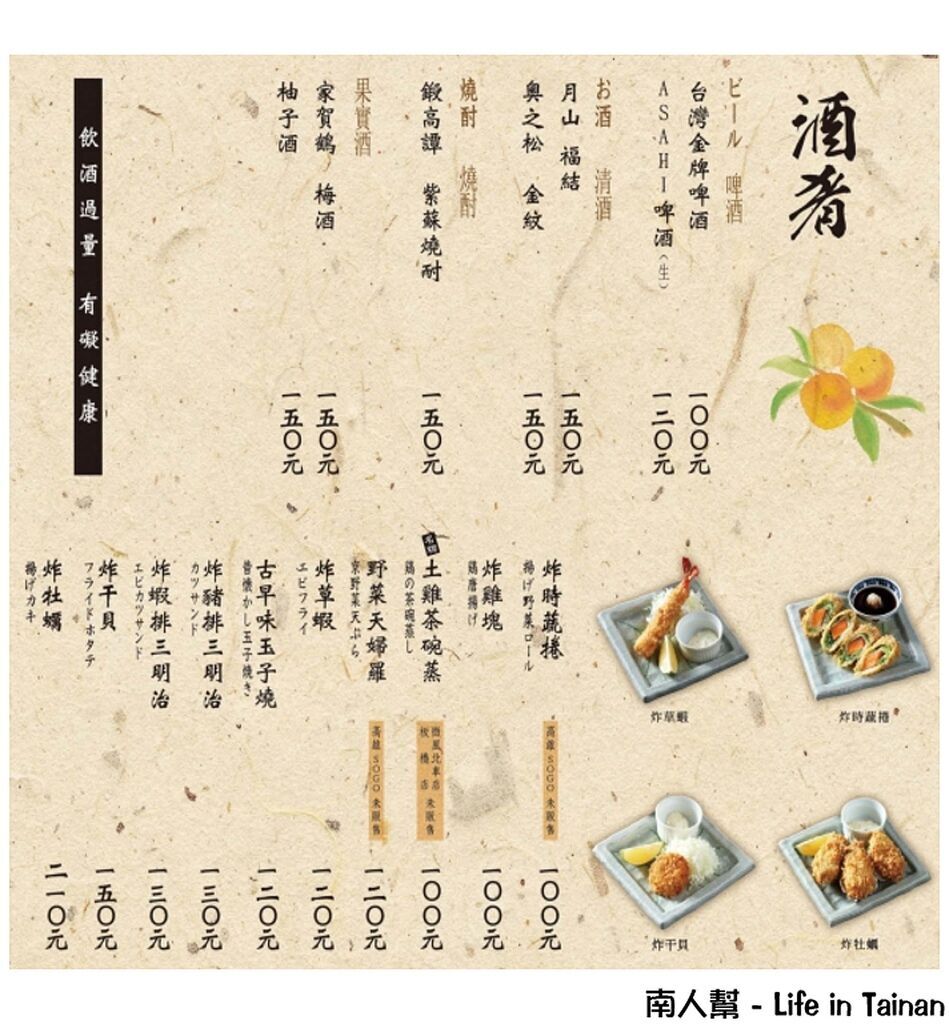 酒肴
ビール 啤酒
台灣金牌啤酒 一〇〇元
ASAHI啤酒(生) 一二〇元
お酒 清酒
月山 福結 一五〇元
奧之松 金紋 一五〇元
燒酎 燒酎
鍛高譚 紫蘇燒酎 一五〇元
果實酒
家賀鶴 梅酒 一五〇元
柚子酒 一五〇元
飲酒過量 有礙健康
炸時蔬捲 一〇〇元
揚げ野菜ロール
高雄SOGO未販售
炸雞塊 一〇〇元
鶏唐揚げ
土雞茶碗蒸 一〇〇元
鶏の茶碗蒸し
微風北車店
板橋店
未販售
野菜天婦羅 一二〇元
京野菜天ぷら
高雄SOGO未販售
炸草蝦 一二〇元
エビフライ
古早味玉子燒 一二〇元
昔懐かし玉子焼き
炸豬排三明治 一三〇元
カツサンド
炸蝦排三明治 一三〇元
エビカツサンド
炸干貝 一五〇元
フライドホタテ
炸牡蠣 二一〇元
揚げカキ
炸草蝦
炸時蔬捲
炸干貝
炸牡蠣
南人幫 - Life in Tainan